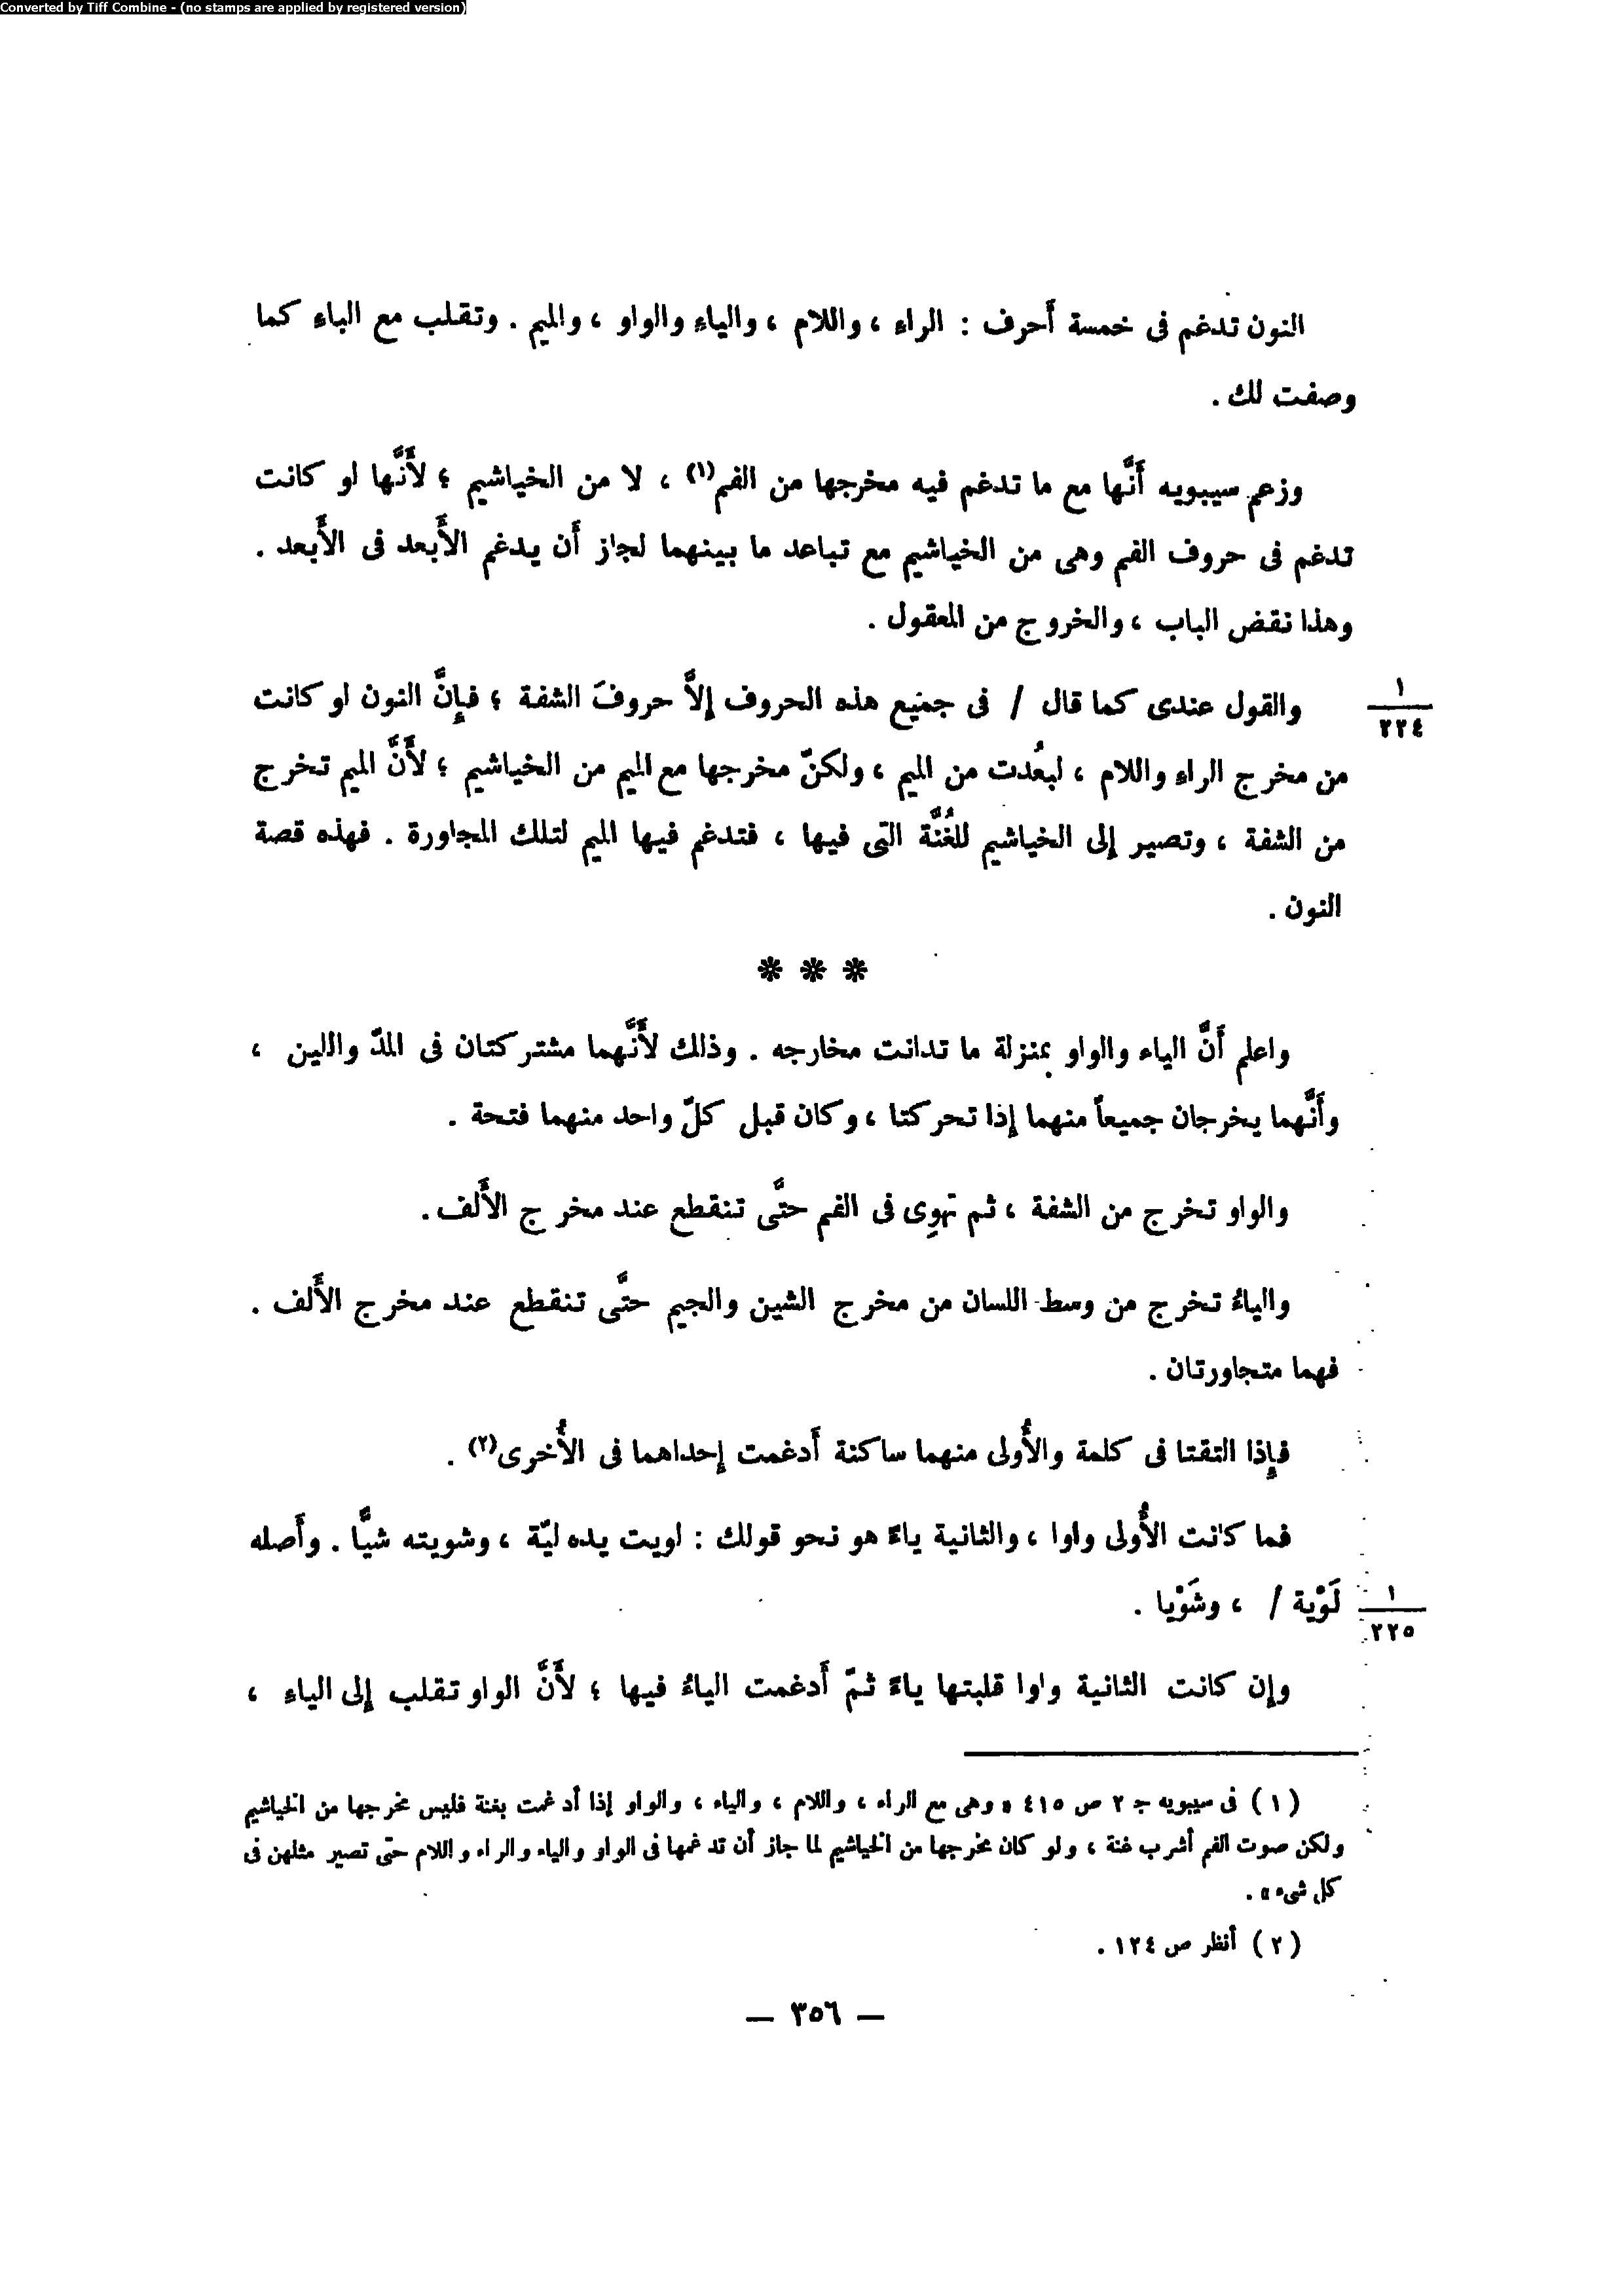 Converted by Tiff Combine - (no stamps are applied by registered version)
النون تدغم فى خمسة أَحرف : الراءِ ، واللام ، والياءِ والواو ، والميم . وتقلب مع الباءِ كما
وصفت لك .
وزعم سيبويه أَنَّها مع ما تدغم فيه مخرجها من الفم(١) ، لا من الخياشيم ؛ لأَنَّها لو كانت
تدغم فى حروف الفم وهى من الخياشيم مع تباعد ما بينهما لجاز أَن يدغم الأَبعد فى الأَبعد .
وهذا نقض الباب ، والخروج من المعقول .
والقول عندى كما قال / فى جميع هذه الحروف إلاَّ حروفَ الشفة ؛ فإِنَّ النون لو كانت
١
٢٢٤
من مخرج الراءِ واللام ، لبعُدت من الميم ، ولكنّ مخرجها مع الميم من الخياشيم ؛ لأَنَّ الميم تخرج
من الشفة ، وتصير إلى الخياشيم للغُنَّة التى فيها ، فتدغم فيها الميم لتلك المجاورة . فهذه قصة
النون .
* * *
واعلم أَنَّ الياء والواو بمنزلة ما تدانت مخارجه . وذلك لأَنَّهما مشتركتان فى المدّ واللين ،
وأَنَّهما يخرجان جميعاً منهما إذا تحركتا ، وكان قبل كلّ واحد منهما فتحة .
والواو تخرج من الشفة ، ثم تهوِى فى الفم حتَّى تنقطع عند مخرج الأَلف .
والياءُ تخرج من وسط اللسان من مخرج الشين والجيم حتَّى تنقطع عند مخرج الأَلف .
فهما متجاورتان .
فإِذا التقتا فى كلمة والأُولى منهما ساكنة أَدغمت إحداهما فى الأُخرى(٢) .
فما كانت الأُولى واوا ، والثانية ياءً هو نحو قولك : لويت يده ليّة ، وشويته شيًّا . وأَصله
لَوْية / ، وشَوْيا .
١
٢٢٥
وإن كانت الثانية واوا قلبتها ياءً ثمّ أَدغمت الياءُ فيها ؛ لأَنَّ الواو تقلب إلى الياءِ ،
(١) فى سيبويه ج ٢ ص ٤١٥ « وهى مع الراء ، واللام ، والياء ، والواو إذا أدغمت بغنة فليس مخرجها من الخياشيم
ولكن صوت الفم أشرب غنة ، ولو كان مخرجها من الخياشيم لما جاز أن تدغمها فى الواو والياء والراء واللام حتى تصير مثلهن فى
كل شىء » .
(٢) أنظر ص ١٢٤ .
— ٣٥٦ —